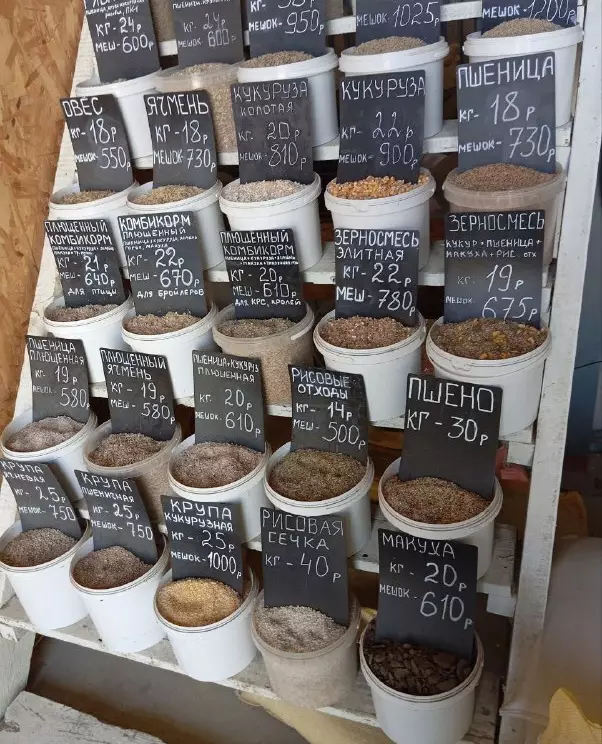 КГ-24р
600
КГ-24р
600
МЕШОК
950р
МЕШОК 1025р
МЕШОК 1200р
ОВЁС
КГ-18р
МЕШОК-550р
ЯЧМЕНЬ
КГ-18р
МЕШОК-730р
КУКУРУЗА
КОЛОТАЯ
КГ 20р
МЕШОК-810р
КУКУРУЗА
КГ 22р
МЕШОК-900р
ПШЕНИЦА
КГ-18р
МЕШОК-730р
ПЛЮЩЕННЫЙ
КОМБИКОРМ
КГ 21р
МЕШ 640р
ДЛЯ ПТИЦЫ
КОМБИКОРМ
ПЛЮЩЕННЫЙ
КГ-22р
МЕШОК 670р
ДЛЯ БРОЙЛЕРОВ
ПЛЮЩЕННЫЙ
КОМБИКОРМ
КГ-20р
МЕШ-610р
ДЛЯ КРС, КРОЛЕЙ
ЗЕРНОСМЕСЬ
ЭЛИТНАЯ
КГ-22р
МЕШ-780р
ЗЕРНОСМЕСЬ
КУКУР+ПШЕНИЦА+
МАКУХА+РИС. ОТХ
КГ 19р
МЕШОК 675р
ПШЕНИЦА
ПЛЮЩЕННАЯ
КГ-19р
МЕШ 580р
ПЛЮЩЕННЫЙ
ЯЧМЕНЬ
КГ-19р
МЕШ-580р
ПШЕНИЦА+КУКУРУЗА
ПЛЮЩЕННАЯ
КГ-20р
МЕШОК 610р
РИСОВЫЕ
ОТХОДЫ
КГ-14р
МЕШОК 500р
ПШЕНО
КГ-30р
КРУПА
ЯЧНЕВАЯ
КГ-25р
МЕШОК-750р
КРУПА
ПШЕНИЧНАЯ
КГ-25р
МЕШОК-750р
КРУПА
КУКУРУЗНАЯ
КГ-25р
МЕШОК-1000р
РИСОВАЯ
СЕЧКА
КГ-40р
МАКУХА
КГ-20р
МЕШОК-610р